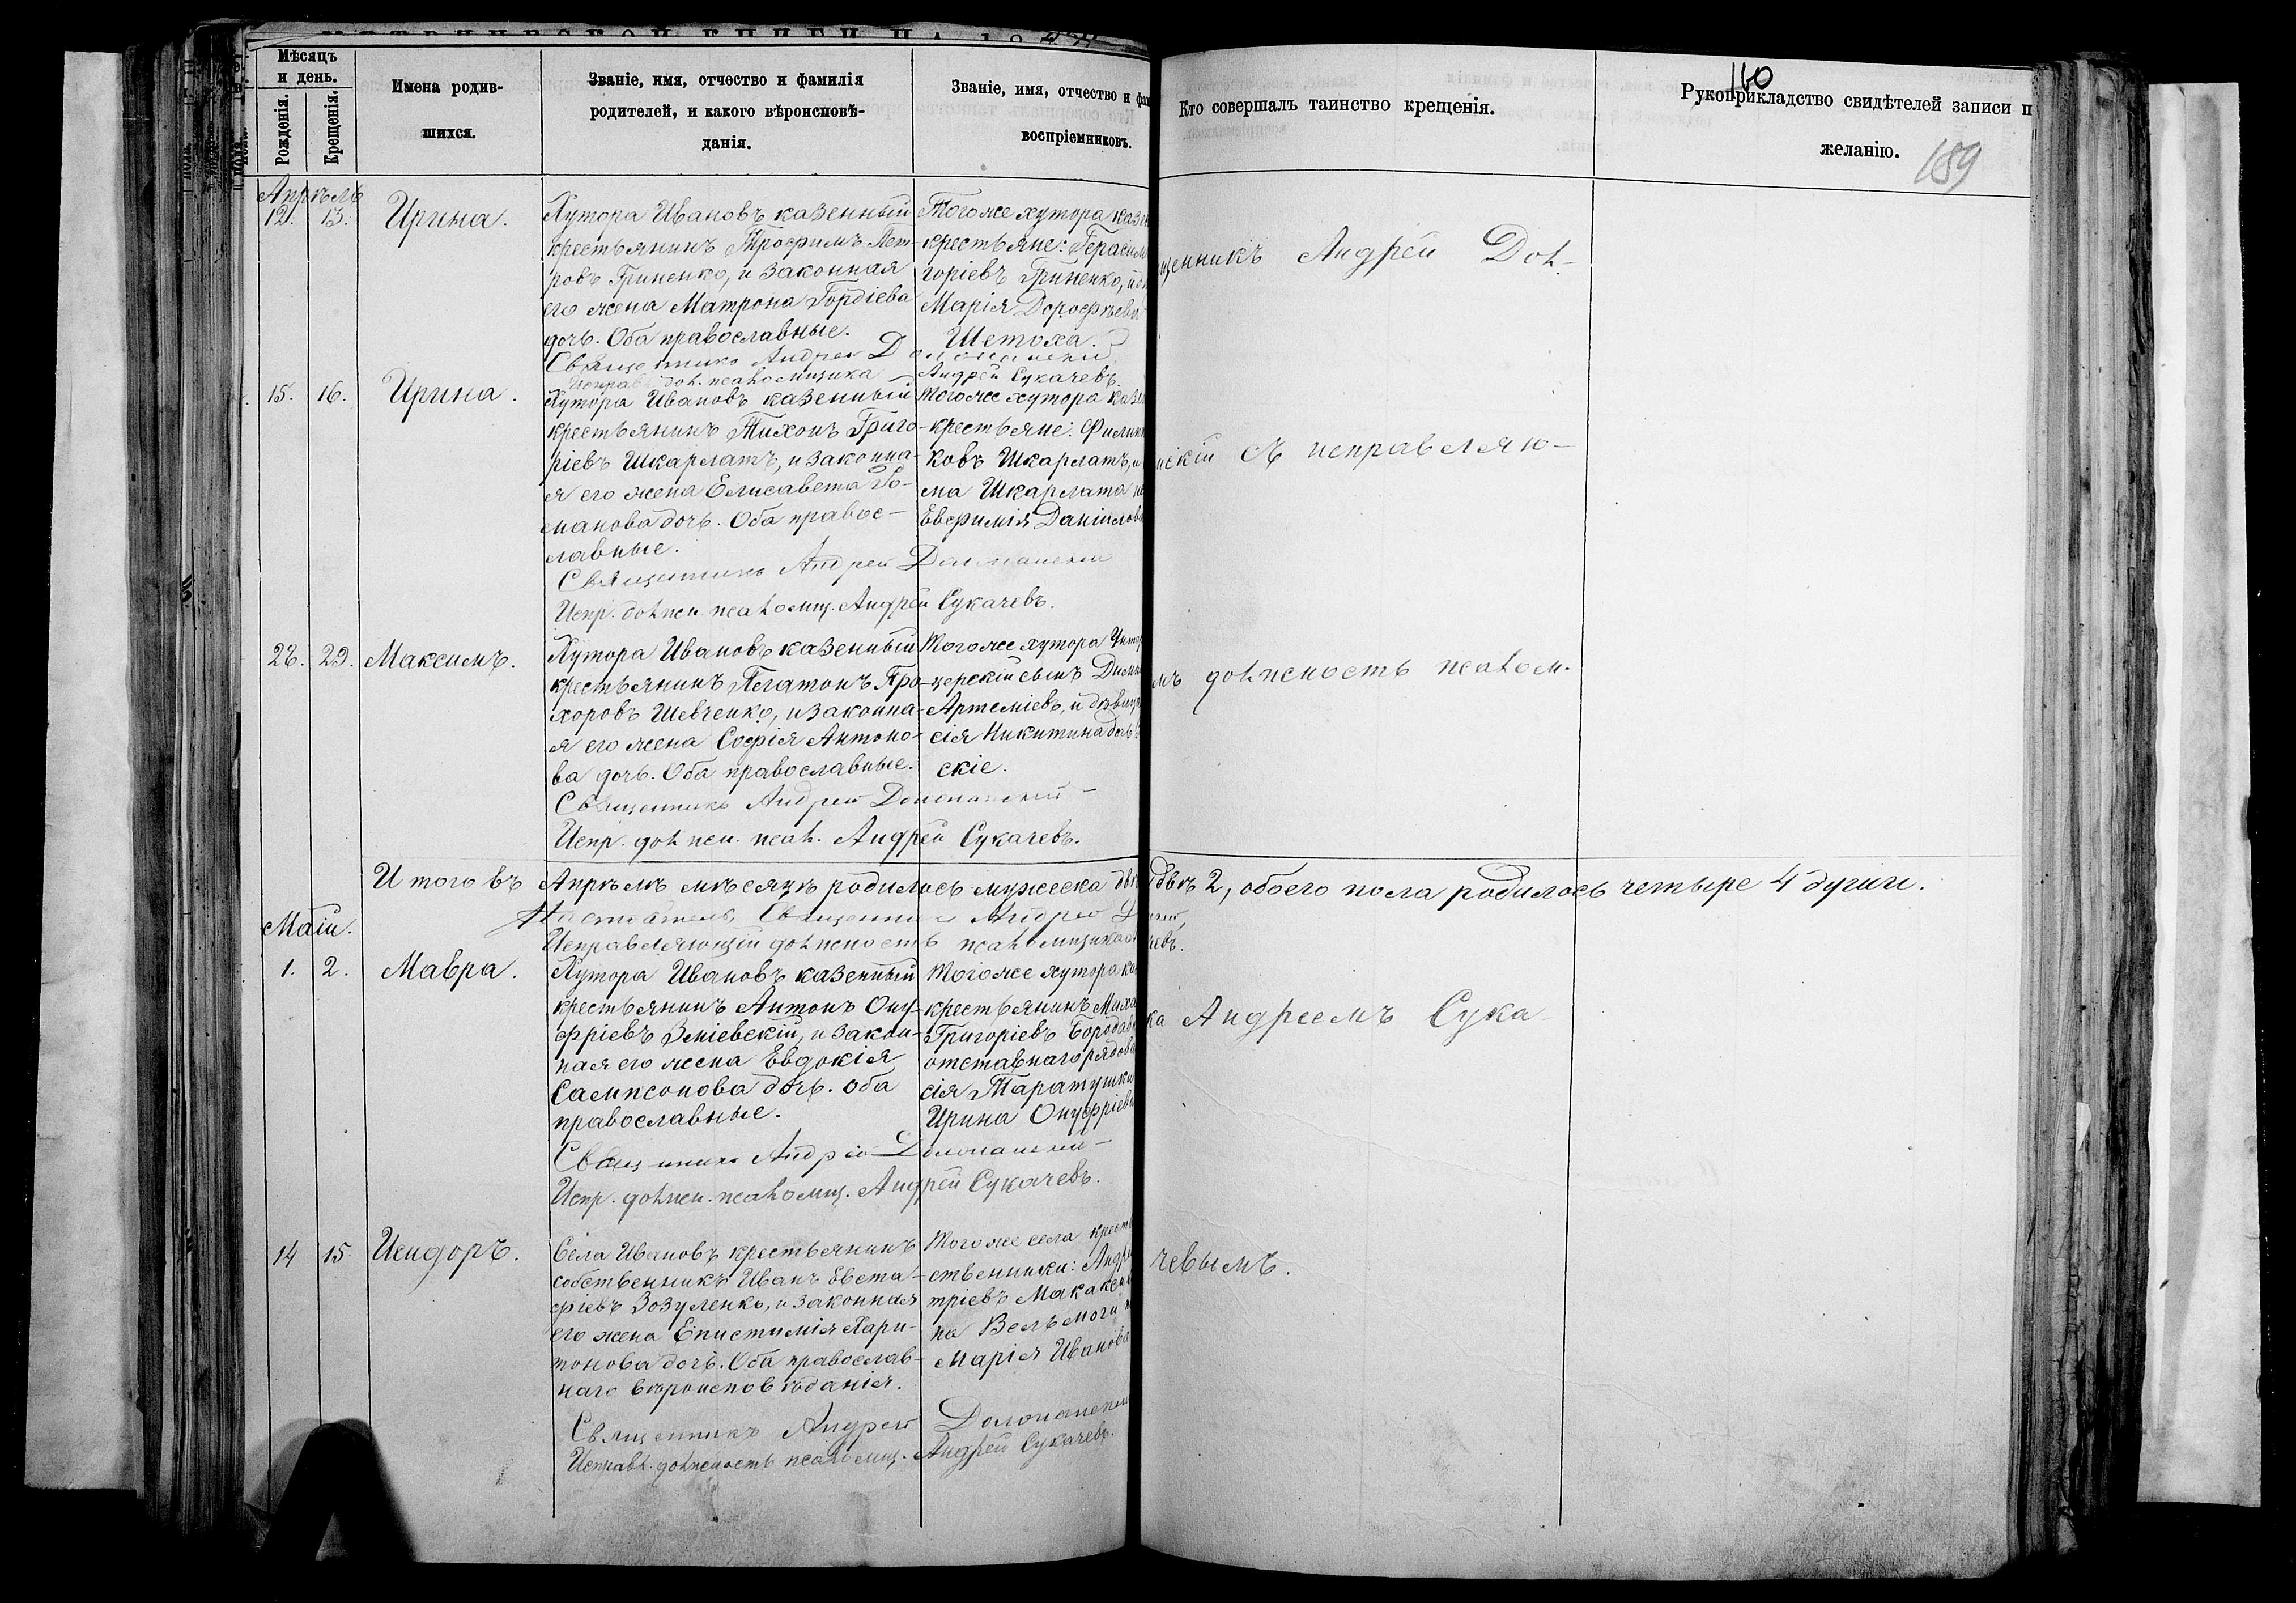 Мѣсяцъ
и день.
Рожденія.
Крещенія.
Имена родив-
шихся.
Званіе, имя, отчество и фамилія
родителей, и какого вѣроисповѣ-
данія.
Званіе, имя, отчество и фам
воспріемниковъ.
Кто совершалъ таинство крещенія.
160
Рукоприкладство свидѣтелей записи п
желанію.
189
Апрѣль
12. 13. Ирина.
Хутора Ивановъ казенный
крестьянинъ Трофимъ Пет-
ровъ Гриненко, и законная
его жена Матрона Гордіева
дочь. Оба православные.
Тогоже хутора казен
крестьяне: Герасим
горіевъ Гриненко, и
Марія Дорофѣева
Шетоха.
Священникъ Андрей Доломанскій
Исправ. дол. псаломщика Андрей Сукачевъ.
щенникъ Андрей Дол-
15. 16. Ирина.
Хутора Ивановъ казенный
крестьянинъ Тихонъ Григо-
ріевъ Шкарлатъ, и законна-
я его жена Елисавета Ро-
манова дочь. Оба правос-
лавные.
Тогоже хутора казен
крестьяне: Филип
ковъ Шкарлатъ, и
ма Шкарлата
Евфимія Даниилов
Священникъ Андрей Доломанскій
Испр. должн псаломщ. Андрей Сукачевъ.
нскій съ исправляю-
28. 29. Максимъ.
Хутора Ивановъ казенный
крестьянинъ Платонъ Про-
хоровъ Шевченко, и законна-
я его жена Софія Антоно-
ва дочь. Оба православные.
Тогоже хутора Унтер
церскій сынъ Дими
Артеміевъ, и дѣвица
сія Никитина дочь
скіе.
Священникъ Андрей Доломанскій
Испр. должн. псал. Андрей Сукачевъ.
мъ должность псалом-
Итого въ Апрѣлѣ мѣсяцѣ родилось мужеска двѣ 2, обоего пола родилось четыре 4 души.
Настоятель, Священникъ Андрей Д
Исправляющій должность псаломщика
чевъ.
Маій.
1. 2. Мавра.
Хутора Ивановъ казенный
крестьянинъ Антонъ Ону-
фріевъ Зміевскій, и закон-
ная его жена Евдокія
Сампсонова дочь. Оба
православные.
Тогоже хутора ка
крестьянинъ Миха
Григоріевъ Бородав
отставнаго рядова
сія Таратушки
Ирина Онуфріева
Священникъ Андрей Доломанскій
Испр. должн. псаломщ. Андрей Сукачевъ.
ка Андреемъ Сука-
14 15 Исидоръ.
Села Ивановъ крестьянинъ
собственникъ Иванъ Евста-
фіевъ Зозуленко, и законная
его жена Епистимія Хари-
тонова дочь. Оба православ-
наго вѣроисповѣданія.
Тогоже села кресть
ственники: Андре
тріевъ Макакен
на Вельмоги
Марія Иванова
Священникъ Андрей Доломанскій
Исправл. должность псаломщ. Андрей Сукачевъ.
чевымъ.